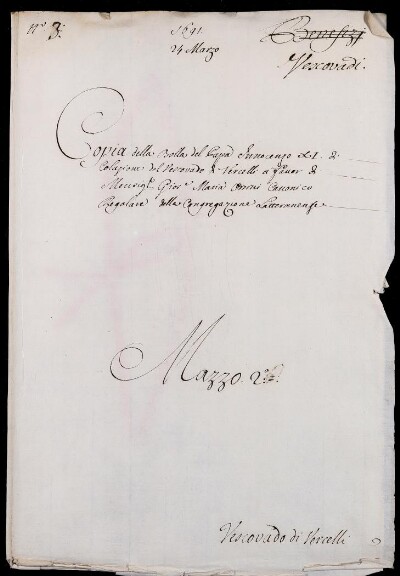 nº 3:
1691
24 Marzo
Benefizj
Vescovadi.
Copia della Bolla del Papa Innocenzo XI. di
Colazione del Vescovado di Vercelli a favor di
Monsigr. Gio: Maria Canonico
Regolare della Congregazione Latteranense
Mazzo. 2º.
Vescovado di Vercelli